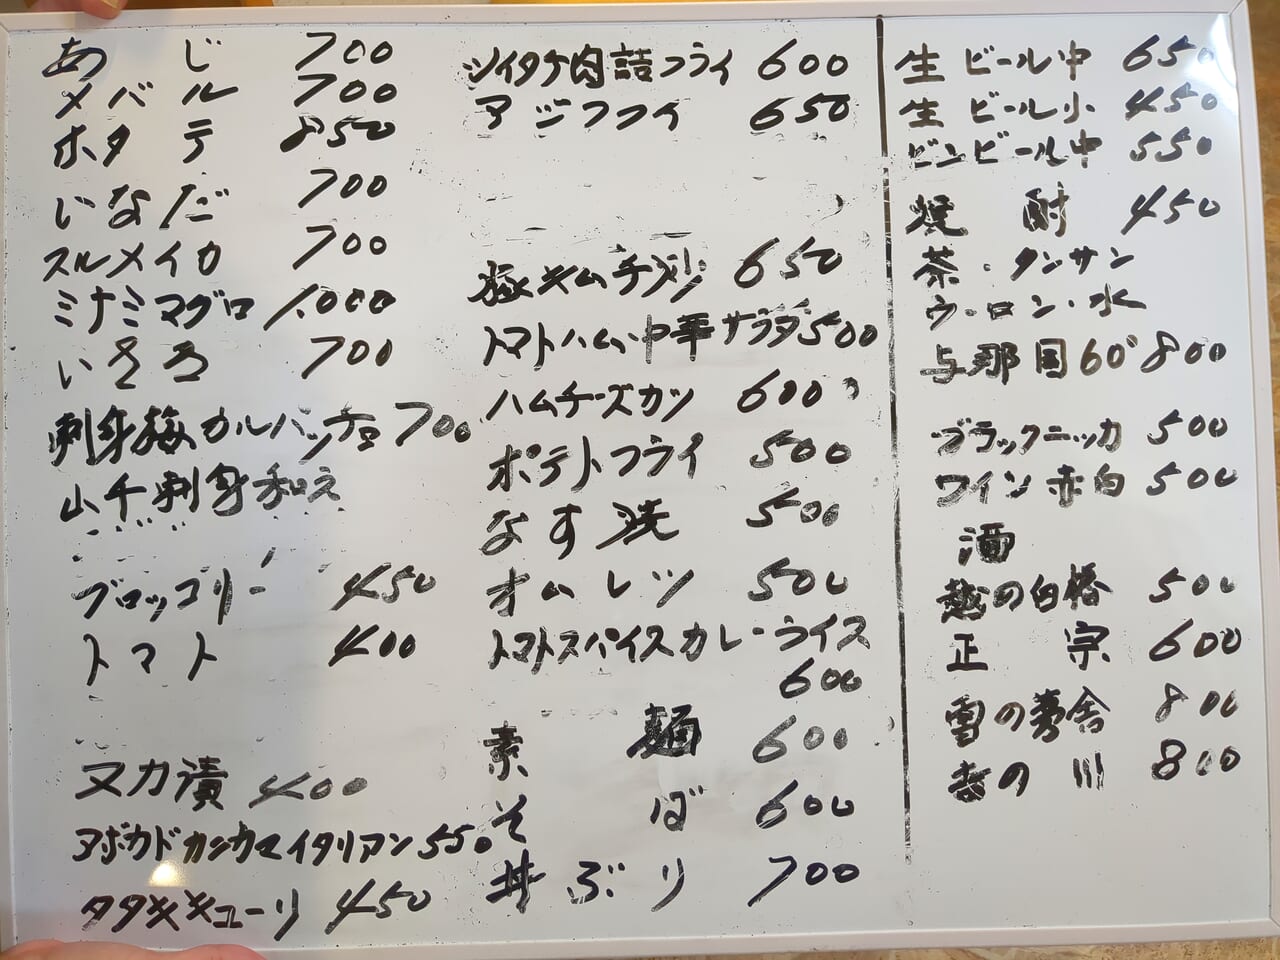 あじ 700
メバル 700
ホタテ 850
いなだ 700
スルメイカ 700
ミナミマグロ 1,000
いさき 700
刺身梅カルパッチョ 700
山千刺身和え
ブロッコリー 450
トマト 400
ヌカ漬 400
アボカドカンカマイタリアン 550
タタキキューリ 450
シイタケ肉詰フライ 600
アジフライ 650
豚キムチ炒 650
トマトハム中華サラダ 500
ハムチーズカツ 600
ポテトフライ 500
なす 500
オムレツ 500
トマトスパイスカレーライス
600
素麺 600
そば 600
丼ぶり 700
生ビール中 650
生ビール小 450
ビンビール中 550
焼酎 450
茶・タンサン
ウーロン・水
与那国60° 800
ブラックニッカ 500
ワイン赤白 500
酒
越の白椿 500
正宗 600
雪の茅舎 800
の川 800